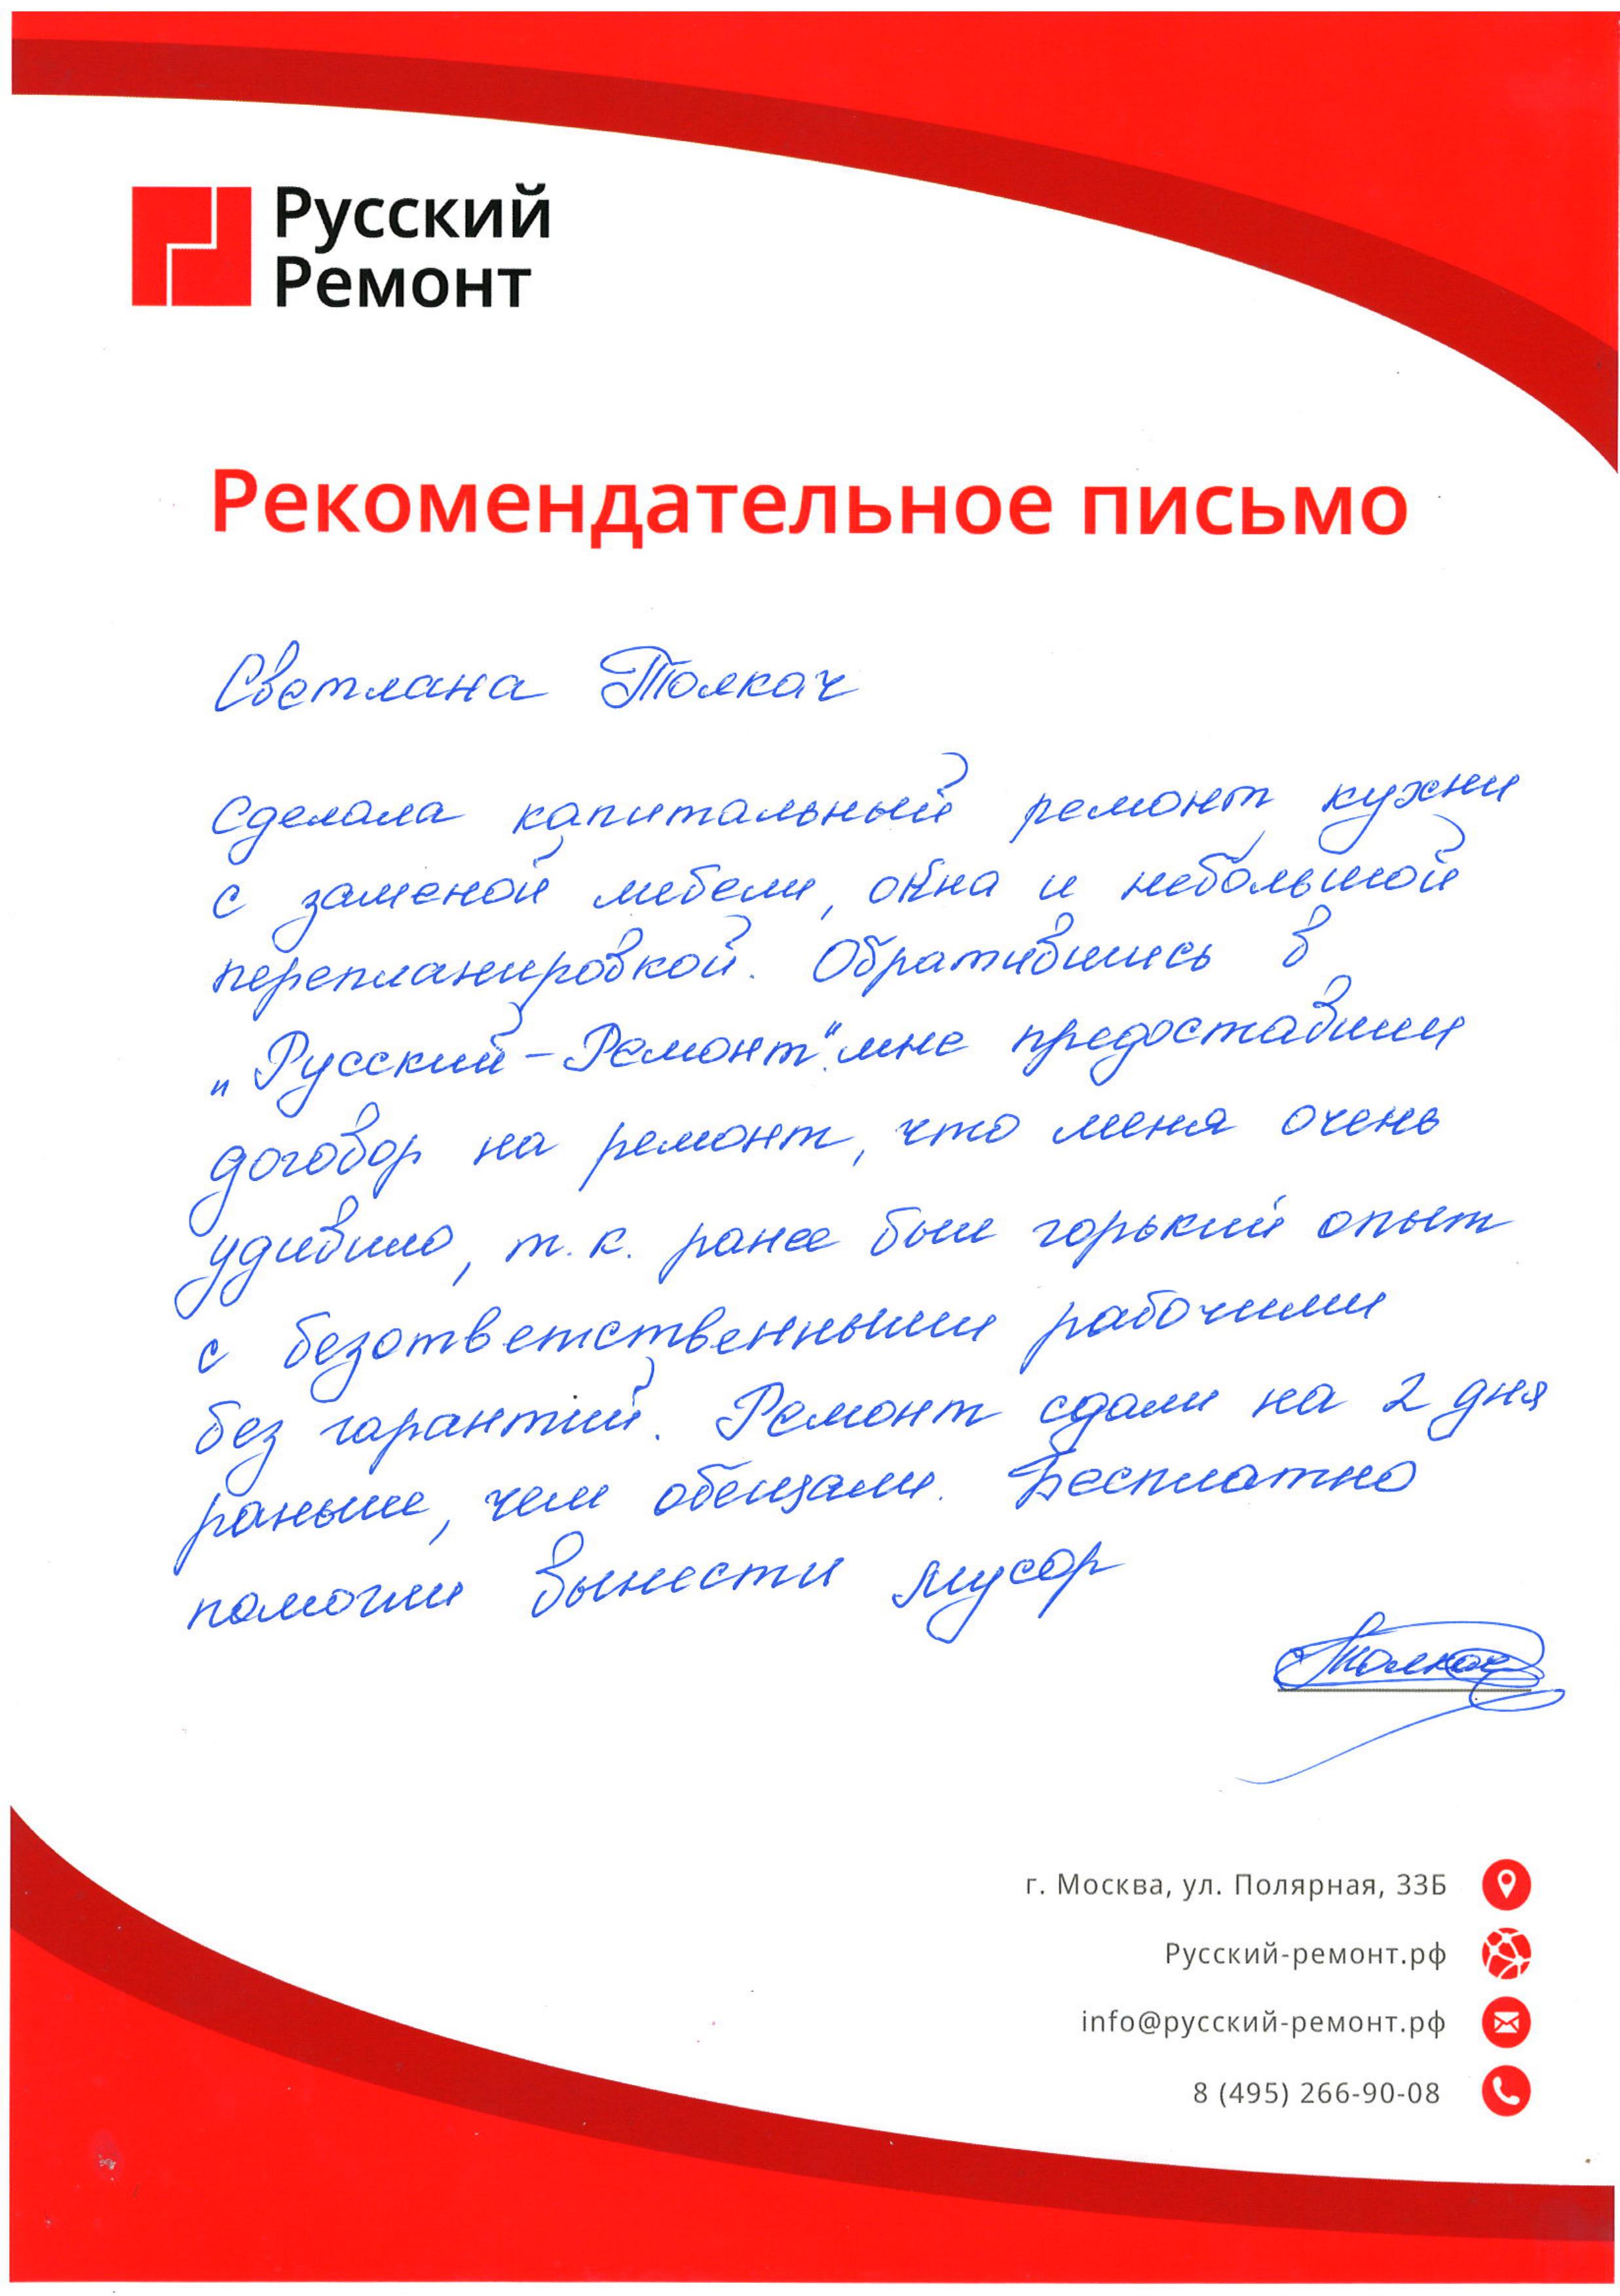 Русский
Ремонт
Рекомендательное письмо
Светлана Толкач
Сделала капитальный ремонт кухни
с заменой мебели, окна и небольшой
перепланировкой. Обратившись в
„Русский-Ремонт“ мне предоставили
договор на ремонт, что меня очень
удивило, т.к. ранее был горький опыт
с безответственными рабочими
без гарантий. Ремонт сдали на 2 дня
раньше, чем обещали. Бесплатно
помогли вынести мусор
Толкач
г. Москва, ул. Полярная, 33Б
Русский-ремонт.рф
info@русский-ремонт.рф
8 (495) 266-90-08